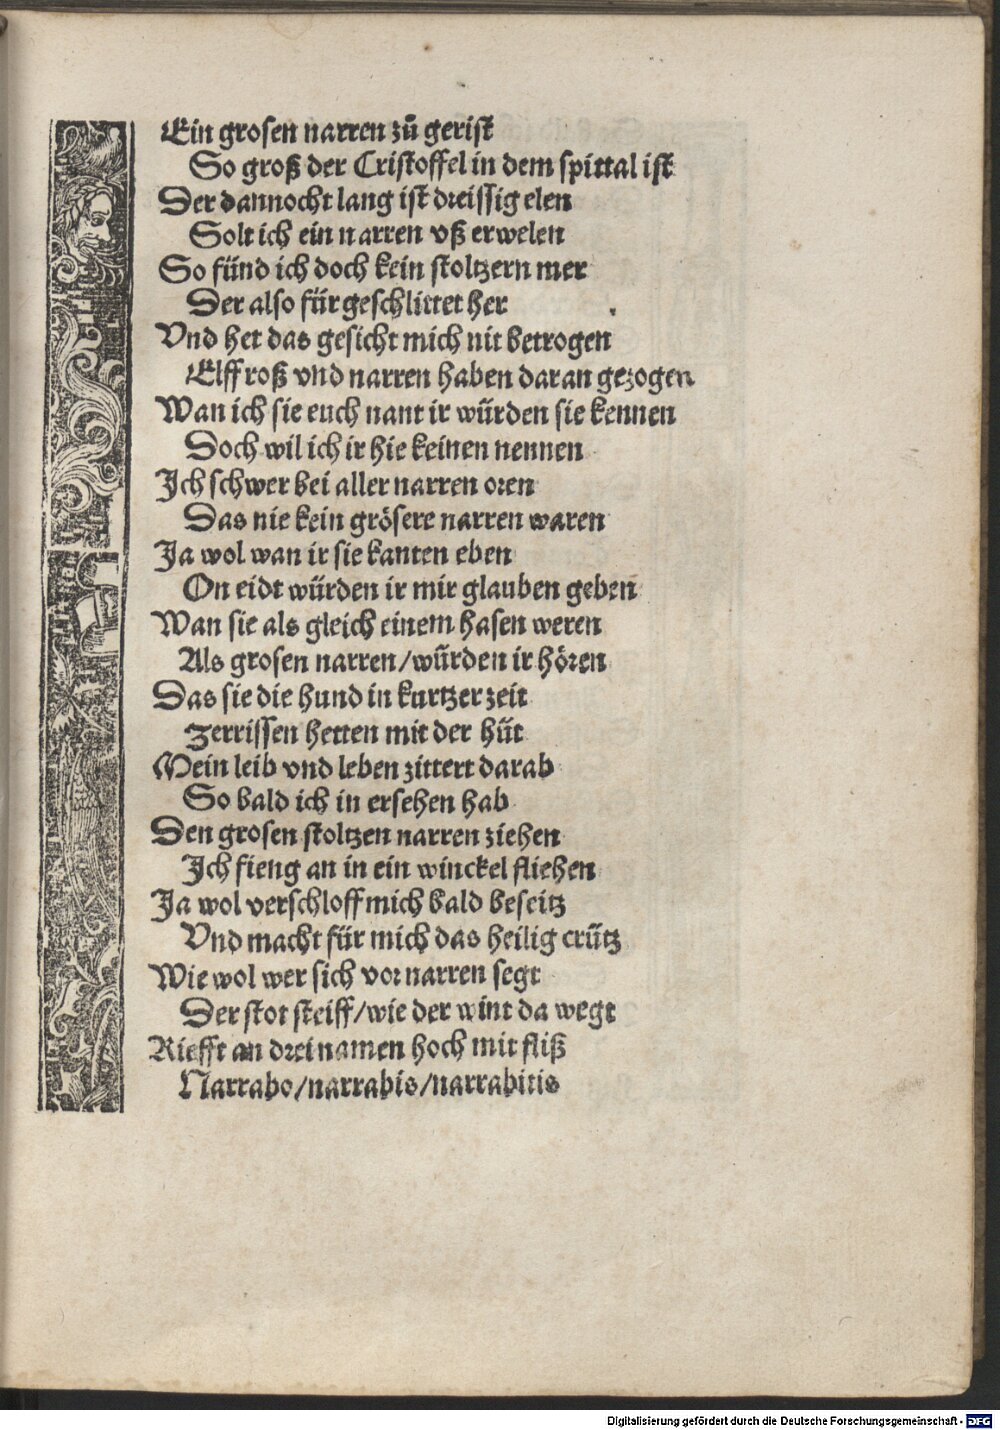 Ein grosen narren zuͦ gerist
So groß der Cristoffel in dem spittal ist
Der dannocht lang ist dreissig elen
Solt ich ein narren vß erwelen
So fünd ich doch kein stoltzern mer
Der also für geschlittet her
Vnd het das gesicht mich nit betrogen
Elff roß vnd narren haben daran gezogen
Wan ich sie euch nant ir würden sie kennen
Doch wil ich ir hie keinen nennen
Ich schwer bei aller narren oren
Das nie kein grösere narren waren
Ja wol wan ir sie kanten eben
On eidt würden ir mir glauben geben
Wan sie als gleich einem hasen weren
Als grosen narren/würden ir hören
Das sie die hund in kurtzer zeit
zerrissen hetten mit der hüt
Mein leib vnd leben zittert darab
So bald ich in ersehen hab
Den grosen stoltzen narren ziehen
Ich fieng an in ein winckel fliehen
Ja wol verschloff mich bald beseitz
Vnd macht für mich das heilig crütz
Wie wol wer sich vor narren segt
Der stot steiff/wie der wint da wegt
Riefft an drei namen hoch mit fliß
Narrabo/narrabis/narrabitis
Digitalisierung gefördert durch die Deutsche Forschungsgemeinschaft - DFG